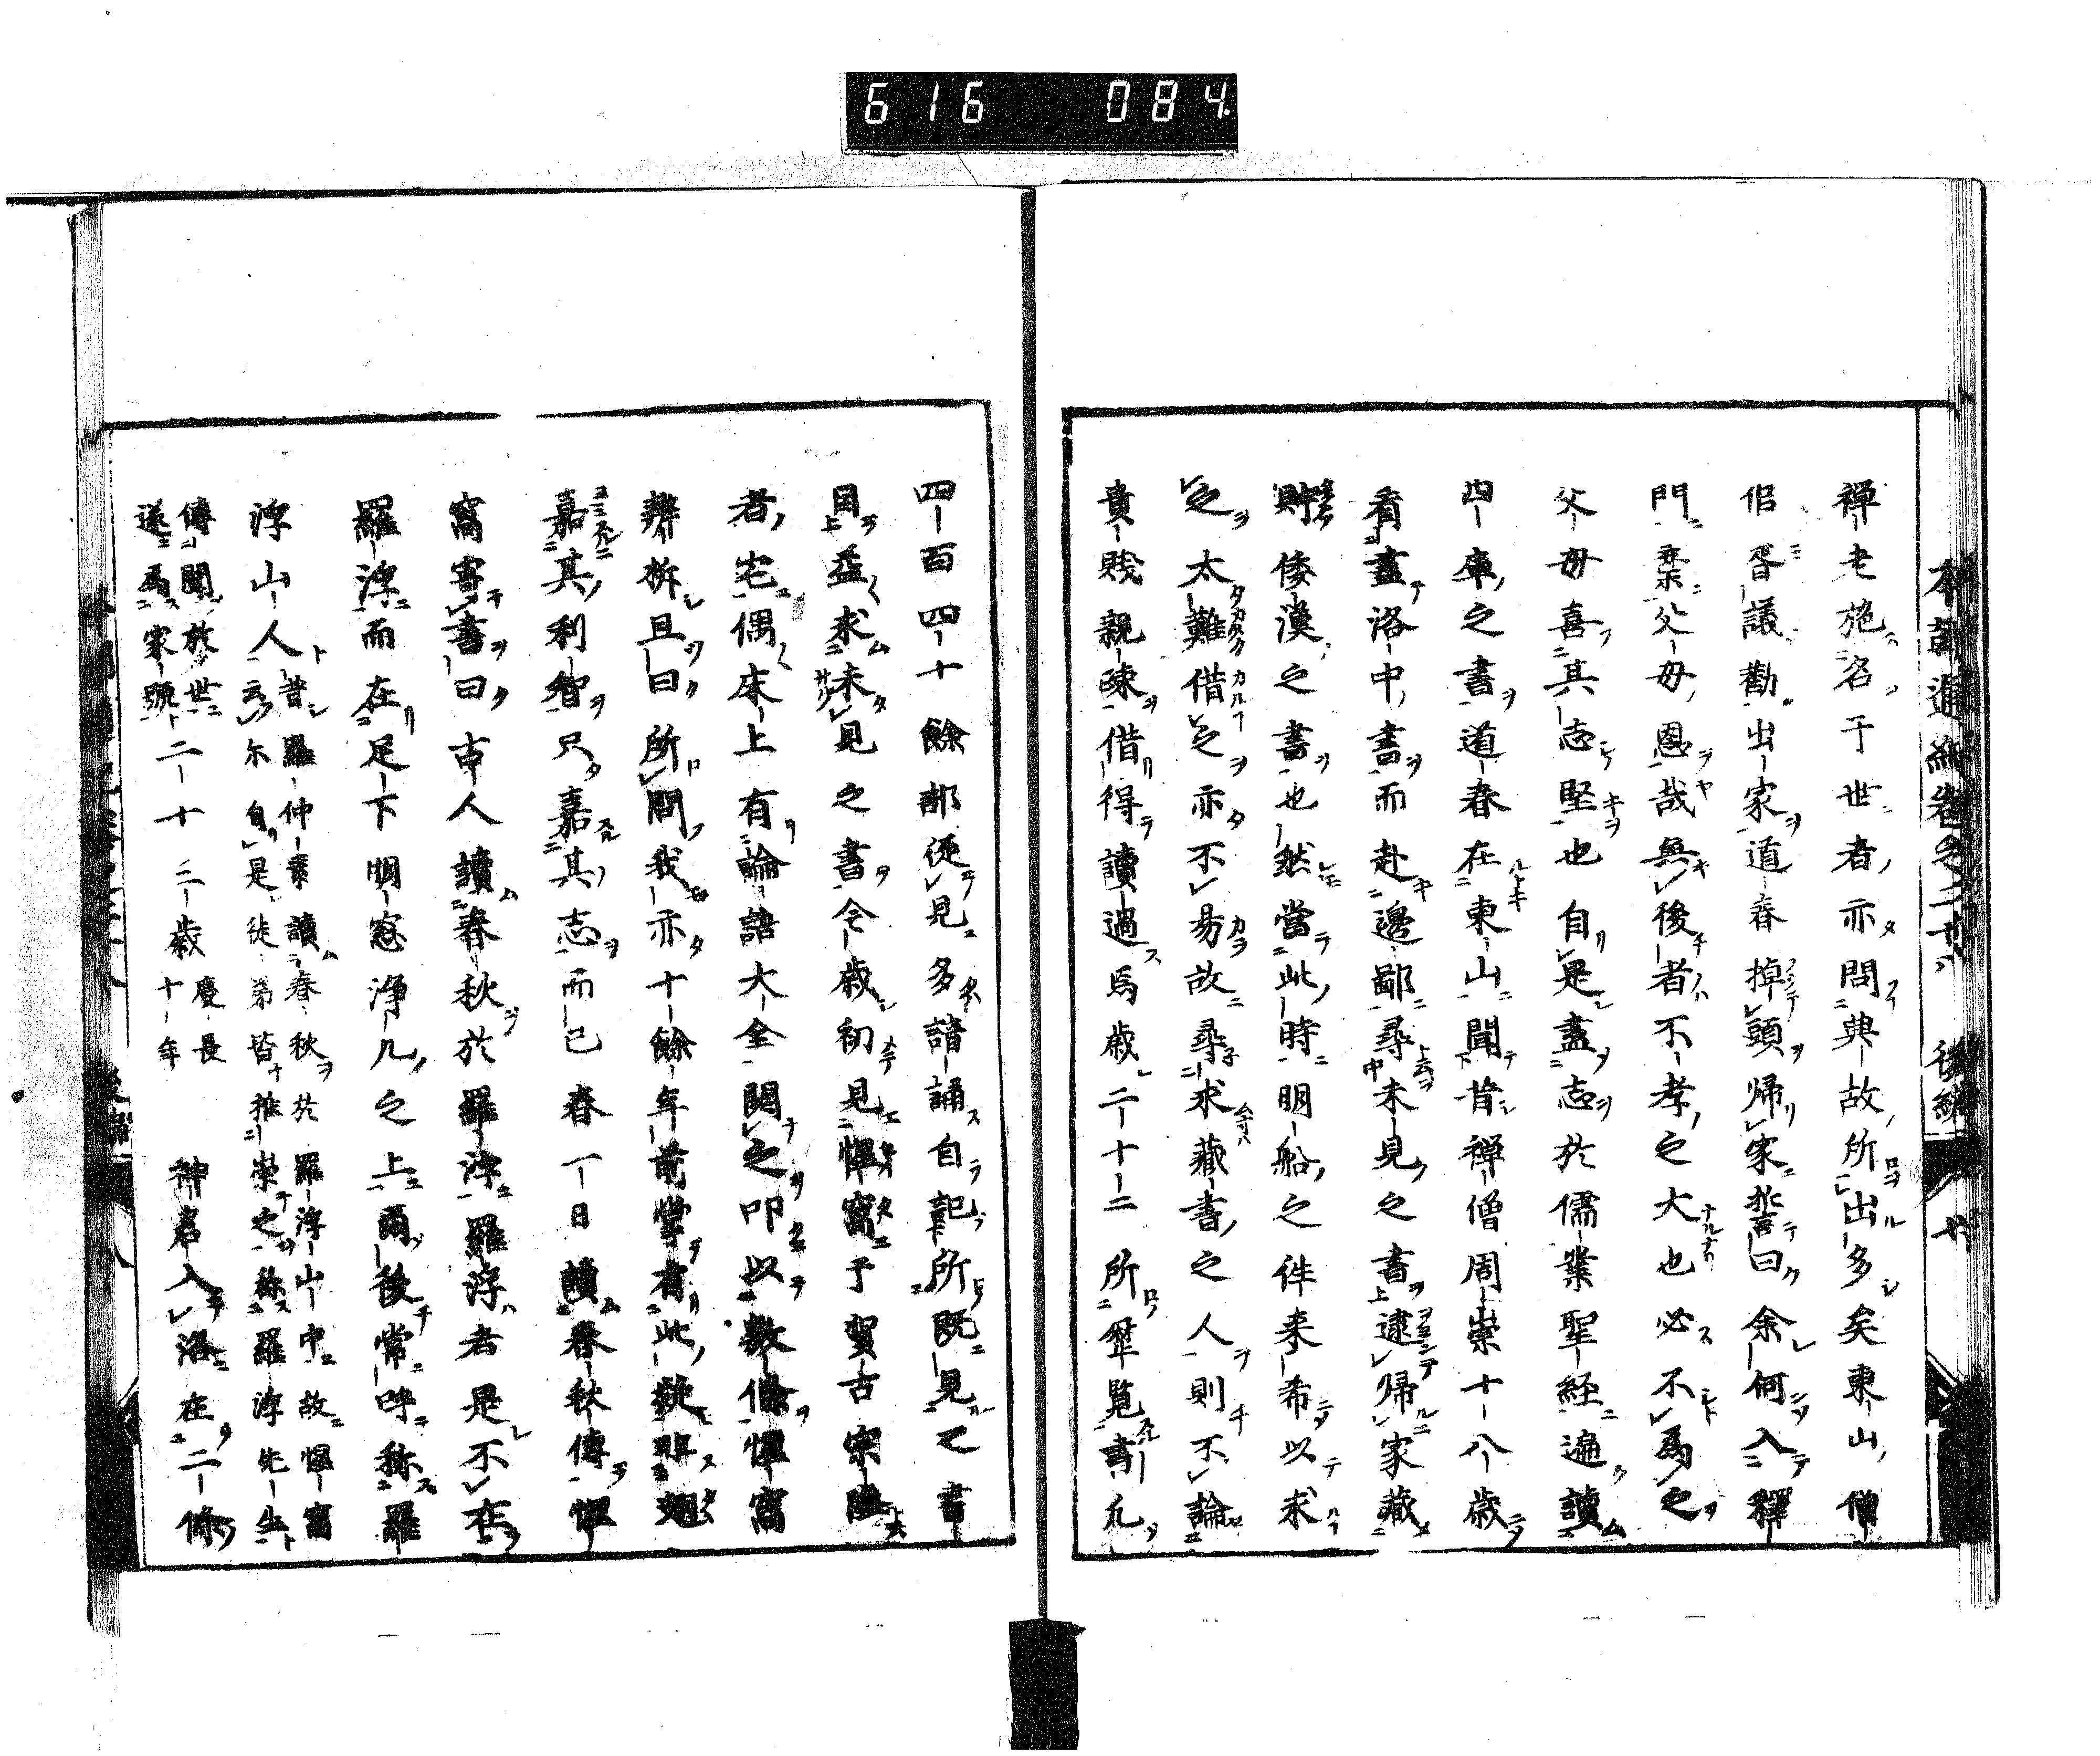 616 084
本朝通紀卷之二十八 後編 廿
禅老施名于世者亦問典故所出多矣東山僧
侶胥議勸出家道春掉頭帰家誓曰余何入釋
門棄父母恩哉無後者不孝之大也必不為之
父母喜其志堅也自是盡志於儒業聖経遍讀
四庫之書道春在東山聞昔禅僧周崇十八歳
看盡洛中書而赴邊鄙尋未見之書逮帰家藏
貯倭漢之書也然當此時明船之伴来希以求
之太難借之亦不易故尋求藏書之人則不論
貴賤親疎借得讀過焉歳二十二所歴覧書凡
四百四十餘部従見多諳誦自記所既見之書
目益求未見之書今歳初見惺窩予賀古宗隆
者宅偶床上有論語大全閲之叩以數條惺窩
辨柝且曰所問我亦十餘年前掌有此欵非翅
嘉其利智只嘉其志而已春一日讀春秋傳惺
窩寄書曰市人讀春秋於羅浮羅浮者是不在
羅浮而在足下明窓浄几之上爾後常呼称羅
浮山人昔羅仲素讀春秋於羅浮山中故惺窩云尓自是徒弟皆推崇之称羅浮先生
傳聞於世遂為家號二十二歳慶長十年 神君入洛在二條